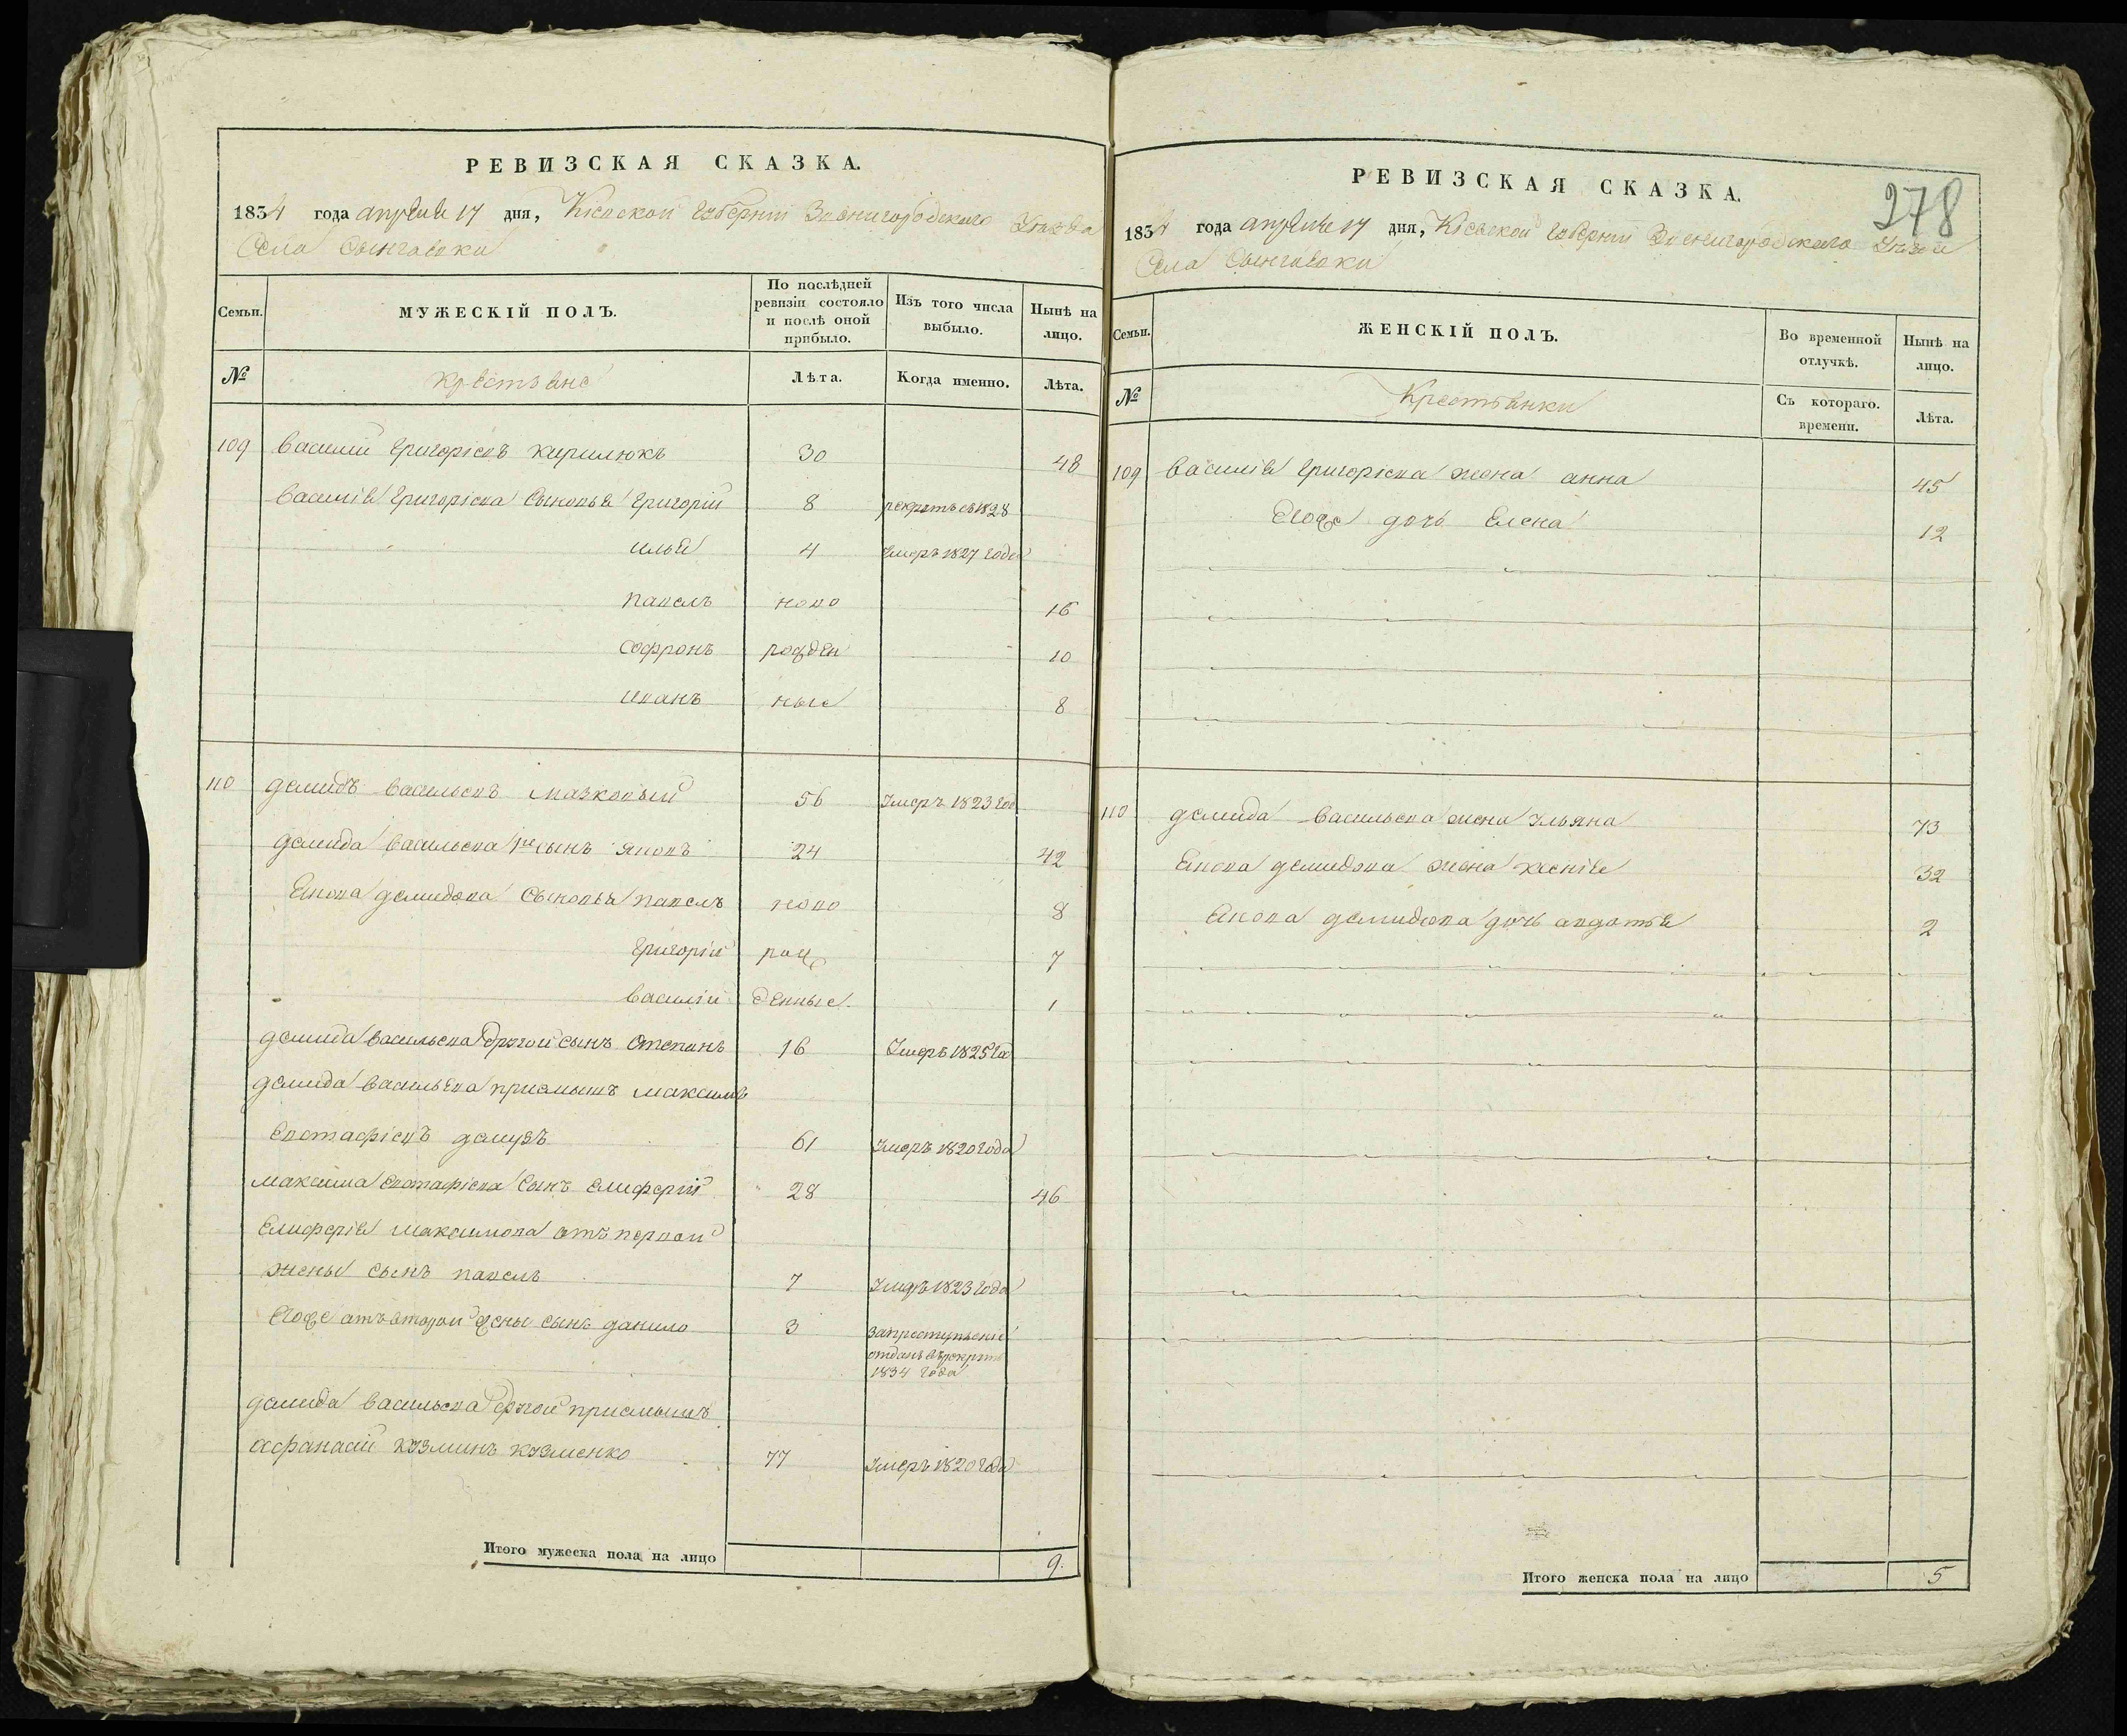 РЕВИЗСКАЯ СКАЗКА.
1834 года апреля 17 дня, Кіевской Губерніи Звенигородскаго Уѣзда
Села
Семьи. МУЖЕСКІЙ ПОЛЪ. По послѣдней ревизіи состояло и послѣ оной прибыло. Изъ того числа выбыло. Нынѣ на лицо.
№ Крестьяне Лѣта. Когда именно. Лѣта.
109 Василий Григоріевъ Кирилюкъ 30 48
Василія Григоріева Сыновья Григорій 8 рекрутъ въ 1828
илья 4 Умеръ 1827 Года
павелъ ново 16
Софронъ рожден 10
иванъ ные 8
110 демидъ Васильевъ Мазковый 56 Умеръ 1823 Год
демида Васильева 1й сынъ яковъ 24 42
Якова демидова Сыновья павелъ ново 8
Григорій рож 7
Василій денные 1
демида Васильева другой сынъ Степанъ 16 Умеръ 1825 Го
демида Васильева приемышъ Максимъ
Евстафіевъ 61 Умеръ 1820 Года
Максима Евстафіева Сынъ Елиферій 28 46
Елиферія Максимова отъ первой
жены сынъ павелъ 7 Умеръ 1823 Года
Егоже отъ второй жены сынъ данило 3 за преступление
отданъ в рекруты
1834 Года
демида Васильева другой приемышъ
Афанасій Кузминъ Кузменко 77 Умеръ 1820 Года
Итого мужеска пола на лицо 9.
278
РЕВИЗСКАЯ СКАЗКА.
1834 года апреля 17 дня, Кіевской Губерніи Звенигородскаго Уѣзда
Села
Семьи. ЖЕНСКІЙ ПОЛЪ. Во временной отлучкѣ. Нынѣ на лицо.
№ Крестьянки Съ котораго. времени. Лѣта.
109 Василія Григоріева жена анна 45
Егоже дочь Елена 12
110 демида Васильева жена Ульяна 73
Якова демидова жена Ксенія 32
Якова демидова дочь авдотья 2
Итого женска пола на лицо 5